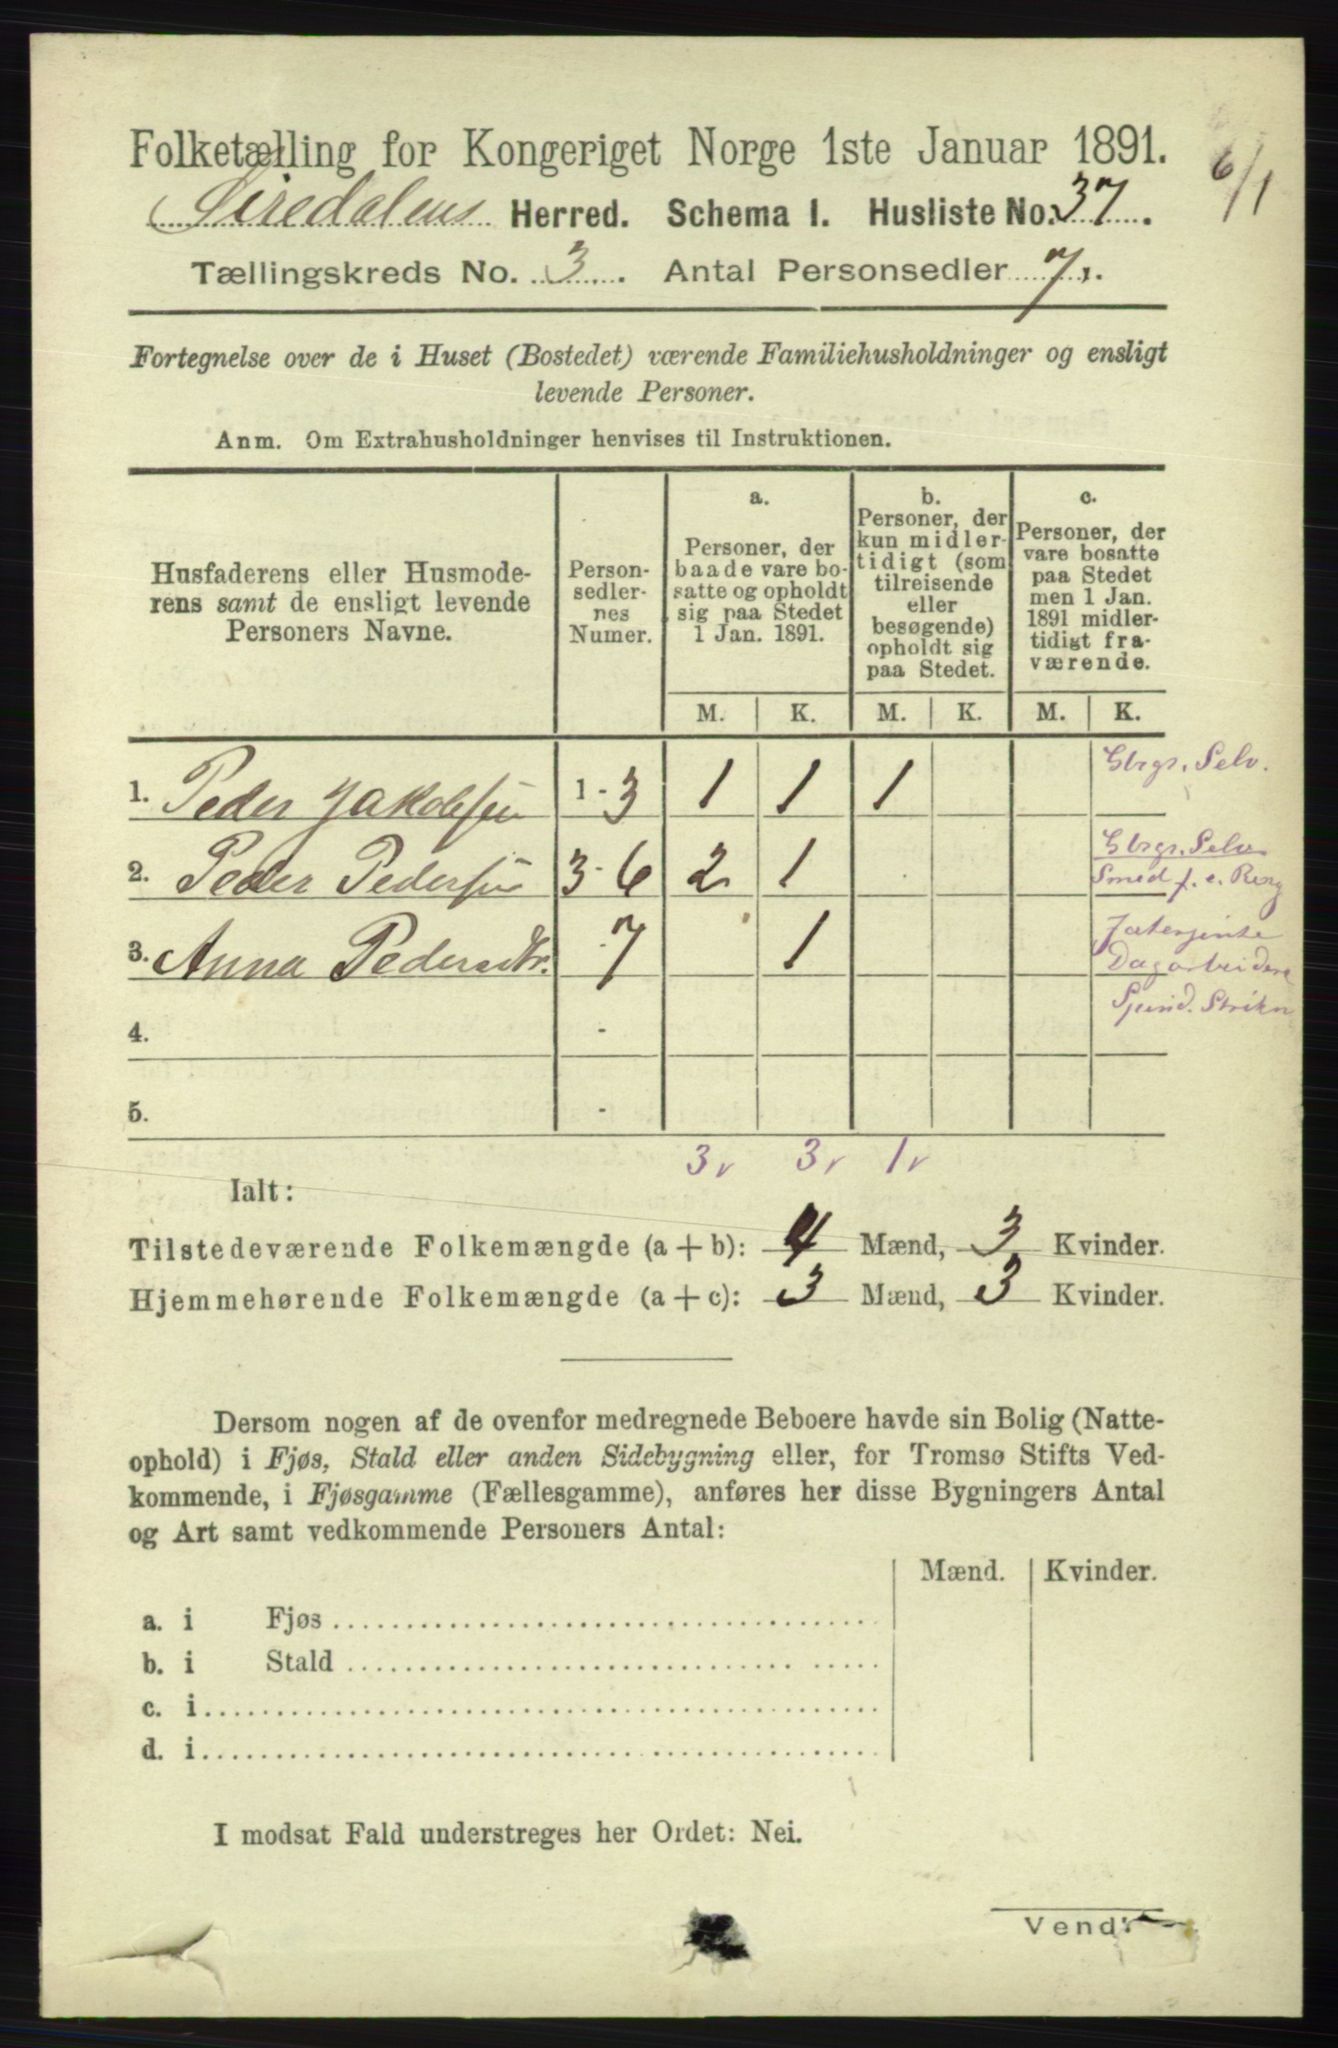 Folketælling for Kongeriget Norge 1ste Januar 1891.
6/1
Siredalens Herred. Schema I. Husliste No. 37.
Tællingskreds No. 3. Antal Personsedler 7.
Fortegnelse over de i Huset (Bostedet) værende Familiehusholdninger og ensligt
levende Personer.
Anm. Om Extrahusholdninger henvises til Instruktionen.
Husfaderens eller Husmode-
rens samt de ensligt levende
Personers Navne.
Person-
sedler-
nes
Numer.
a.
Personer, der
baade vare bo-
satte og opholdt
sig paa Stedet
1 Jan. 1891.
b.
Personer, der
kun midler-
tidigt (som
tilreisende
eller
besøgende)
opholdt sig
paa Stedet.
c.
Personer, der
vare bosatte
paa Stedet
men 1 Jan.
1891 midler-
tidigt fra-
værende.
M. K. M. K. M. K.
1. Peder Jakobsen 1 - 3 1 1 1 Gbrgr. Selv.
2. Peder Pedersen 3 - 6 2 1 Gbrgr. Selv
Smed f. e. Reg
3. Anna Pedersdtr. - 7 1
Dagarbeiderske
Spind. Strikn
4. -
5. -
3 3 1
Ialt:
Tilstedeværende Folkemængde (a + b): 4 Mænd, 3 Kvinder.
Hjemmehørende Folkemængde (a + c): 3 Mænd, 3 Kvinder.
Dersom nogen af de ovenfor medregnede Beboere havde sin Bolig (Natte-
ophold) i Fjøs, Stald eller anden Sidebygning eller, for Tromsø Stifts Ved-
kommende, i Fjøsgamme (Fællesgamme), anføres her disse Bygningers Antal
og Art samt vedkommende Personers Antal:
Mænd. Kvinder.
a. i Fjøs
b. i Stald
c. i
d. i
I modsat Fald understreges her Ordet: Nei.
Vend!